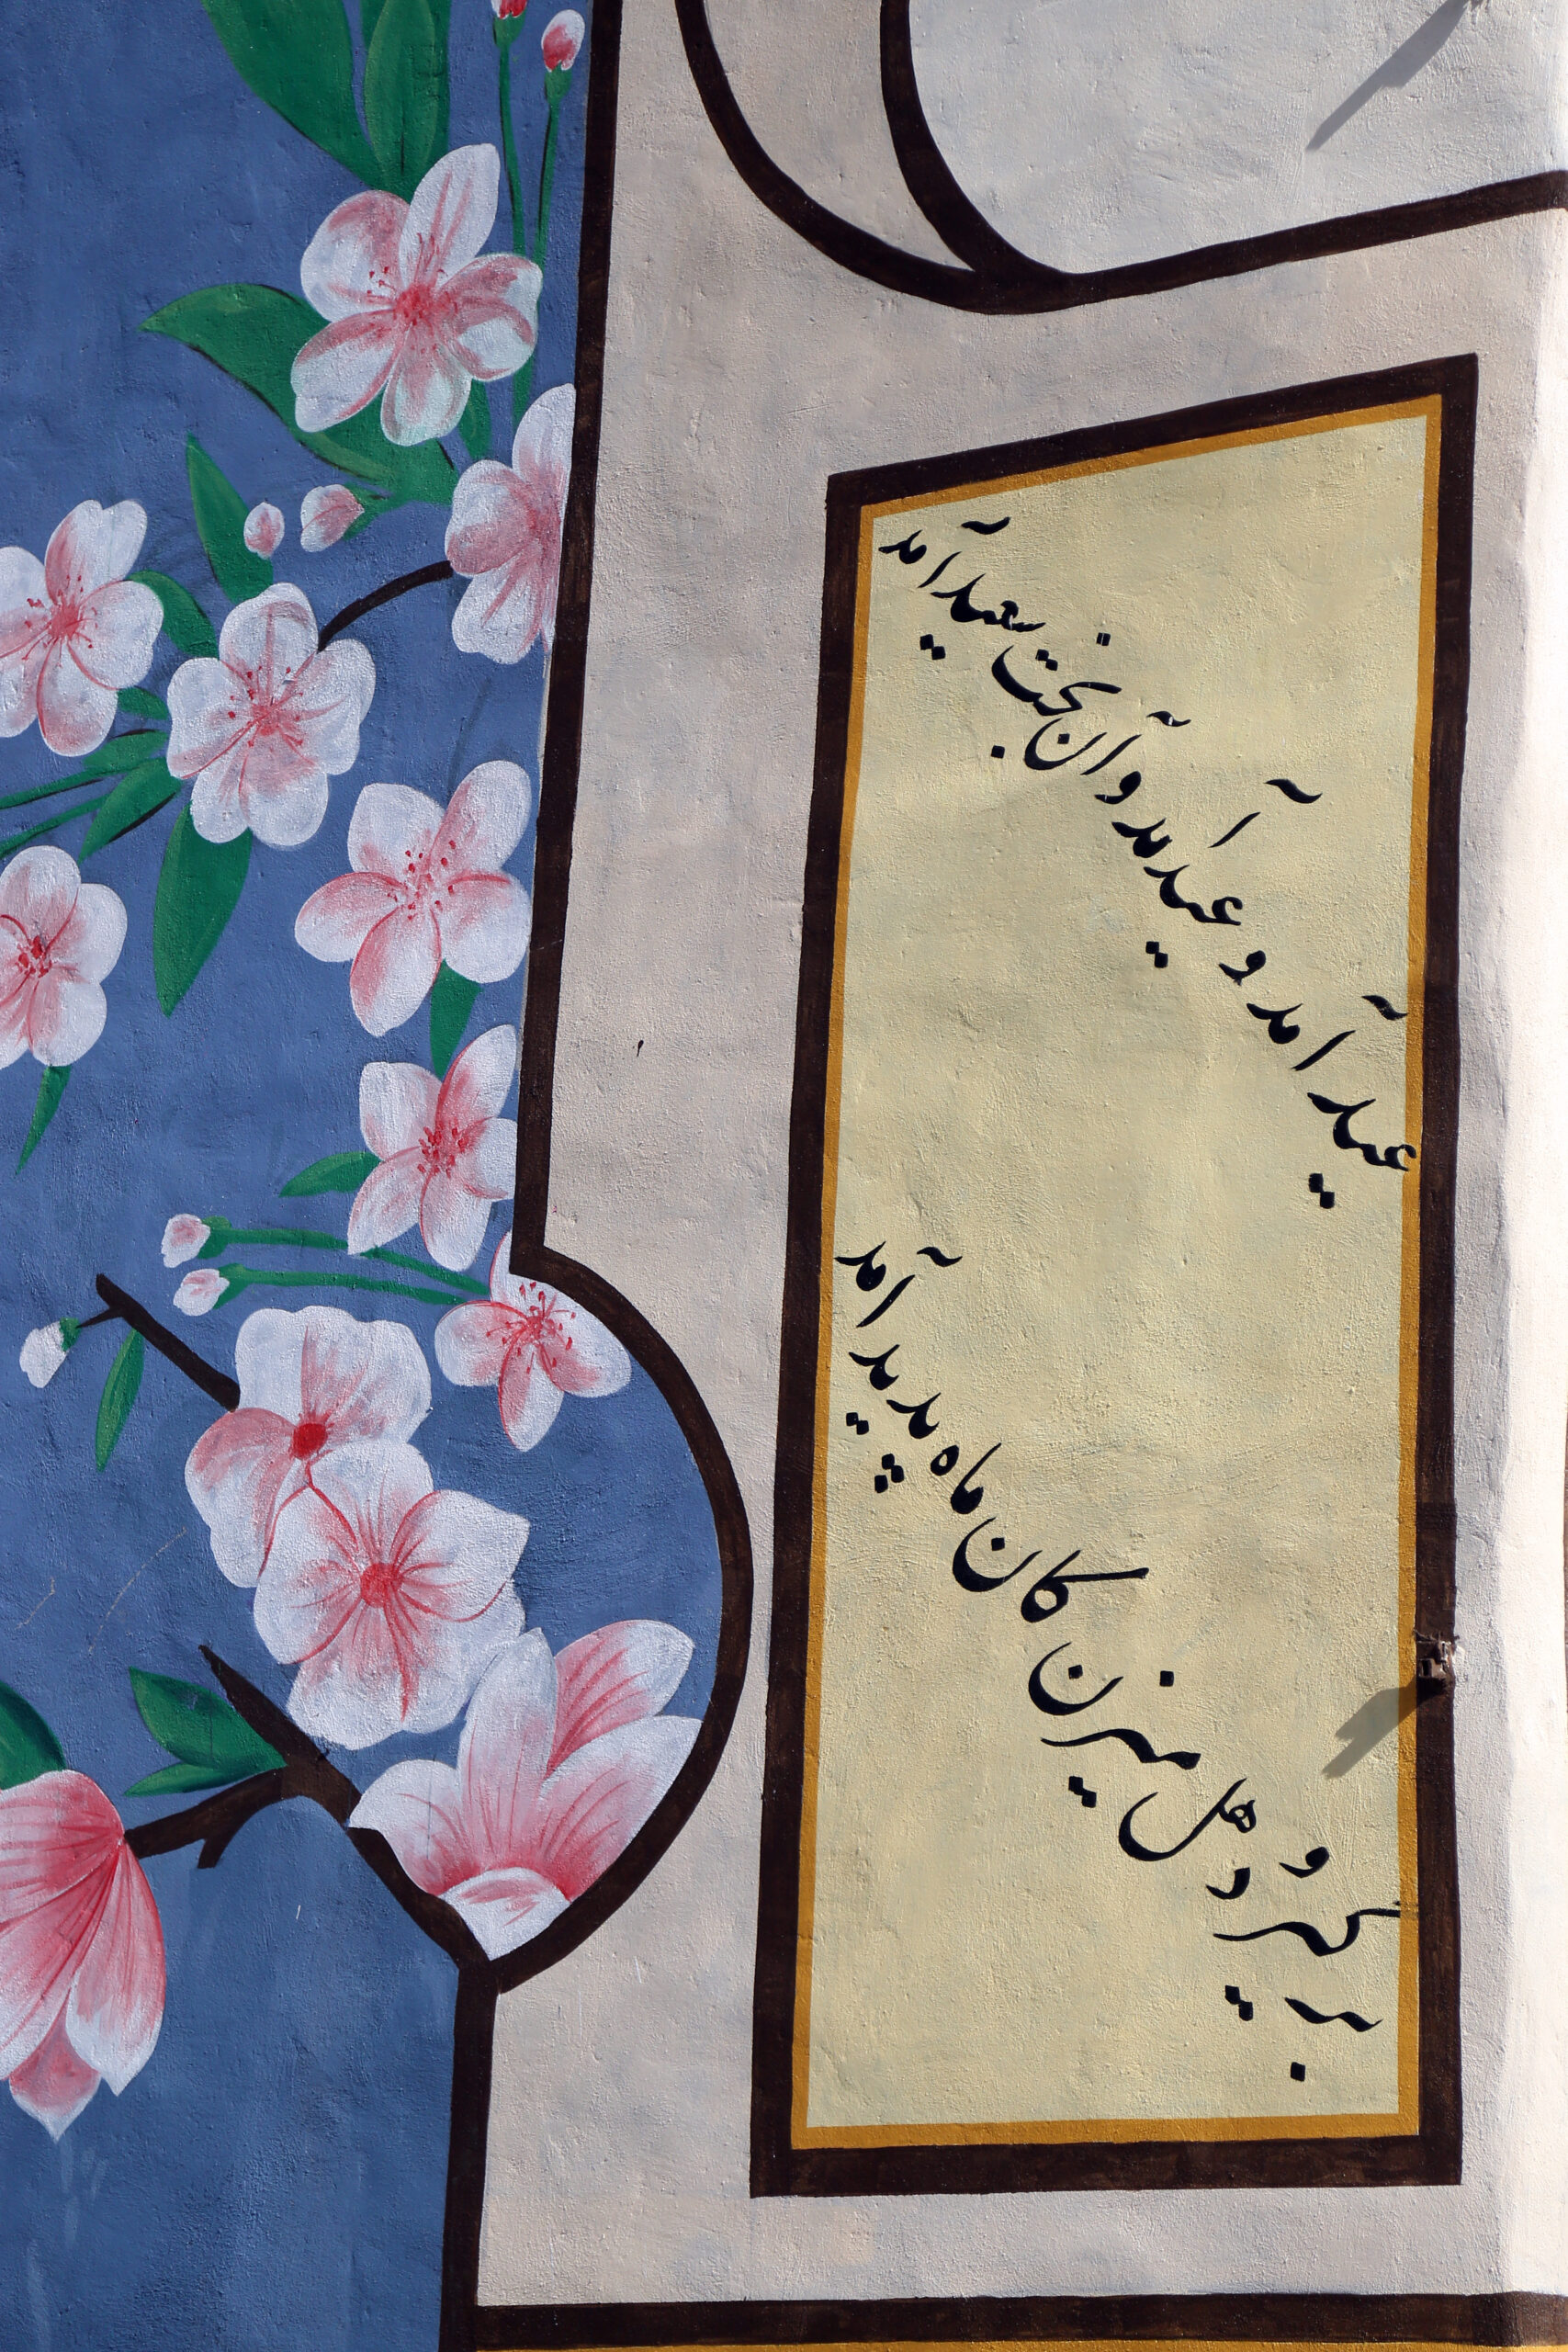 عید آمد و عید آمد وآن بخت سعید آمد
برگیر و دهل میزن کان ماه پدید آمد